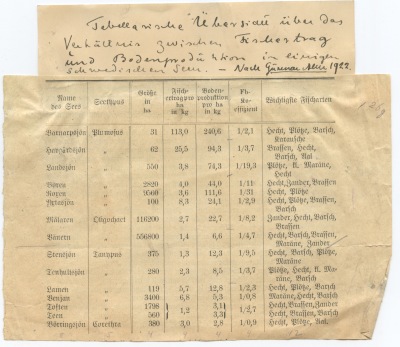 Tabellarische Übersicht über das
Verhältnis zwischen Fischertrag
und Bodenproduktion in einigen
schwedischen Seen. — Nach Gunnar Alm, 1922.
Name des Sees Seetypus Größe in ha Fisch- ertrag pro ha in kg Boden- produktion pro ha in kg Fb- Ko- effizient Wichtigste Fischarten
Barnarpsjön Plumosus 31 113,0 240,6 1/2,1 Hecht, Plötze, Barsch,
Karausche
62 25,5 94,3 1/3,7 Brassen, Hecht,
Barsch, Aal
Landsjön „ 550 3,8 74,3 1/19,3 Plötze, Kl. Maräne,
Hecht
„ 2820 4,0 44,0 1/11 Hecht, Zander, Brassen
Roxen „ 9568 3,6 111,6 1/31 Hecht, Plötze
„ 100 8,3 24,1 1/2,9 Hecht, Plötze, Brassen,
Barsch
Mälaren Oligochaet 116200 2,7 22,7 1/8,2 Zander, Hecht, Barsch,
Brassen
Vänern „ 556800 1,4 6,6 1/4,7 Hecht, Barsch, Brassen,
Maräne, Zander
Stensjön Tanypus 375 1,3 12,3 1/9,5 Hecht, Barsch, Plötze,
Maräne
Tenhultsjön „ 280 2,3 8,5 1/3,7 Plötze, Hecht, Kl. Ma-
räne, Barsch
Lamen „ 119 5,7 12,8 1/2,3 Hecht, Barsch, Plötze
„ 3400 6,8 5,3 1/0,8 Maräne, Hecht, Barsch
Toften „ 1798 1,2 3,1 1/2,7 Hecht, Brassen, Zander
Teen „ 560 3,3 Hecht, Brassen, Barsch
Corethra 380 3,0 2,8 1/0,9 Hecht, Plötze, Aal.